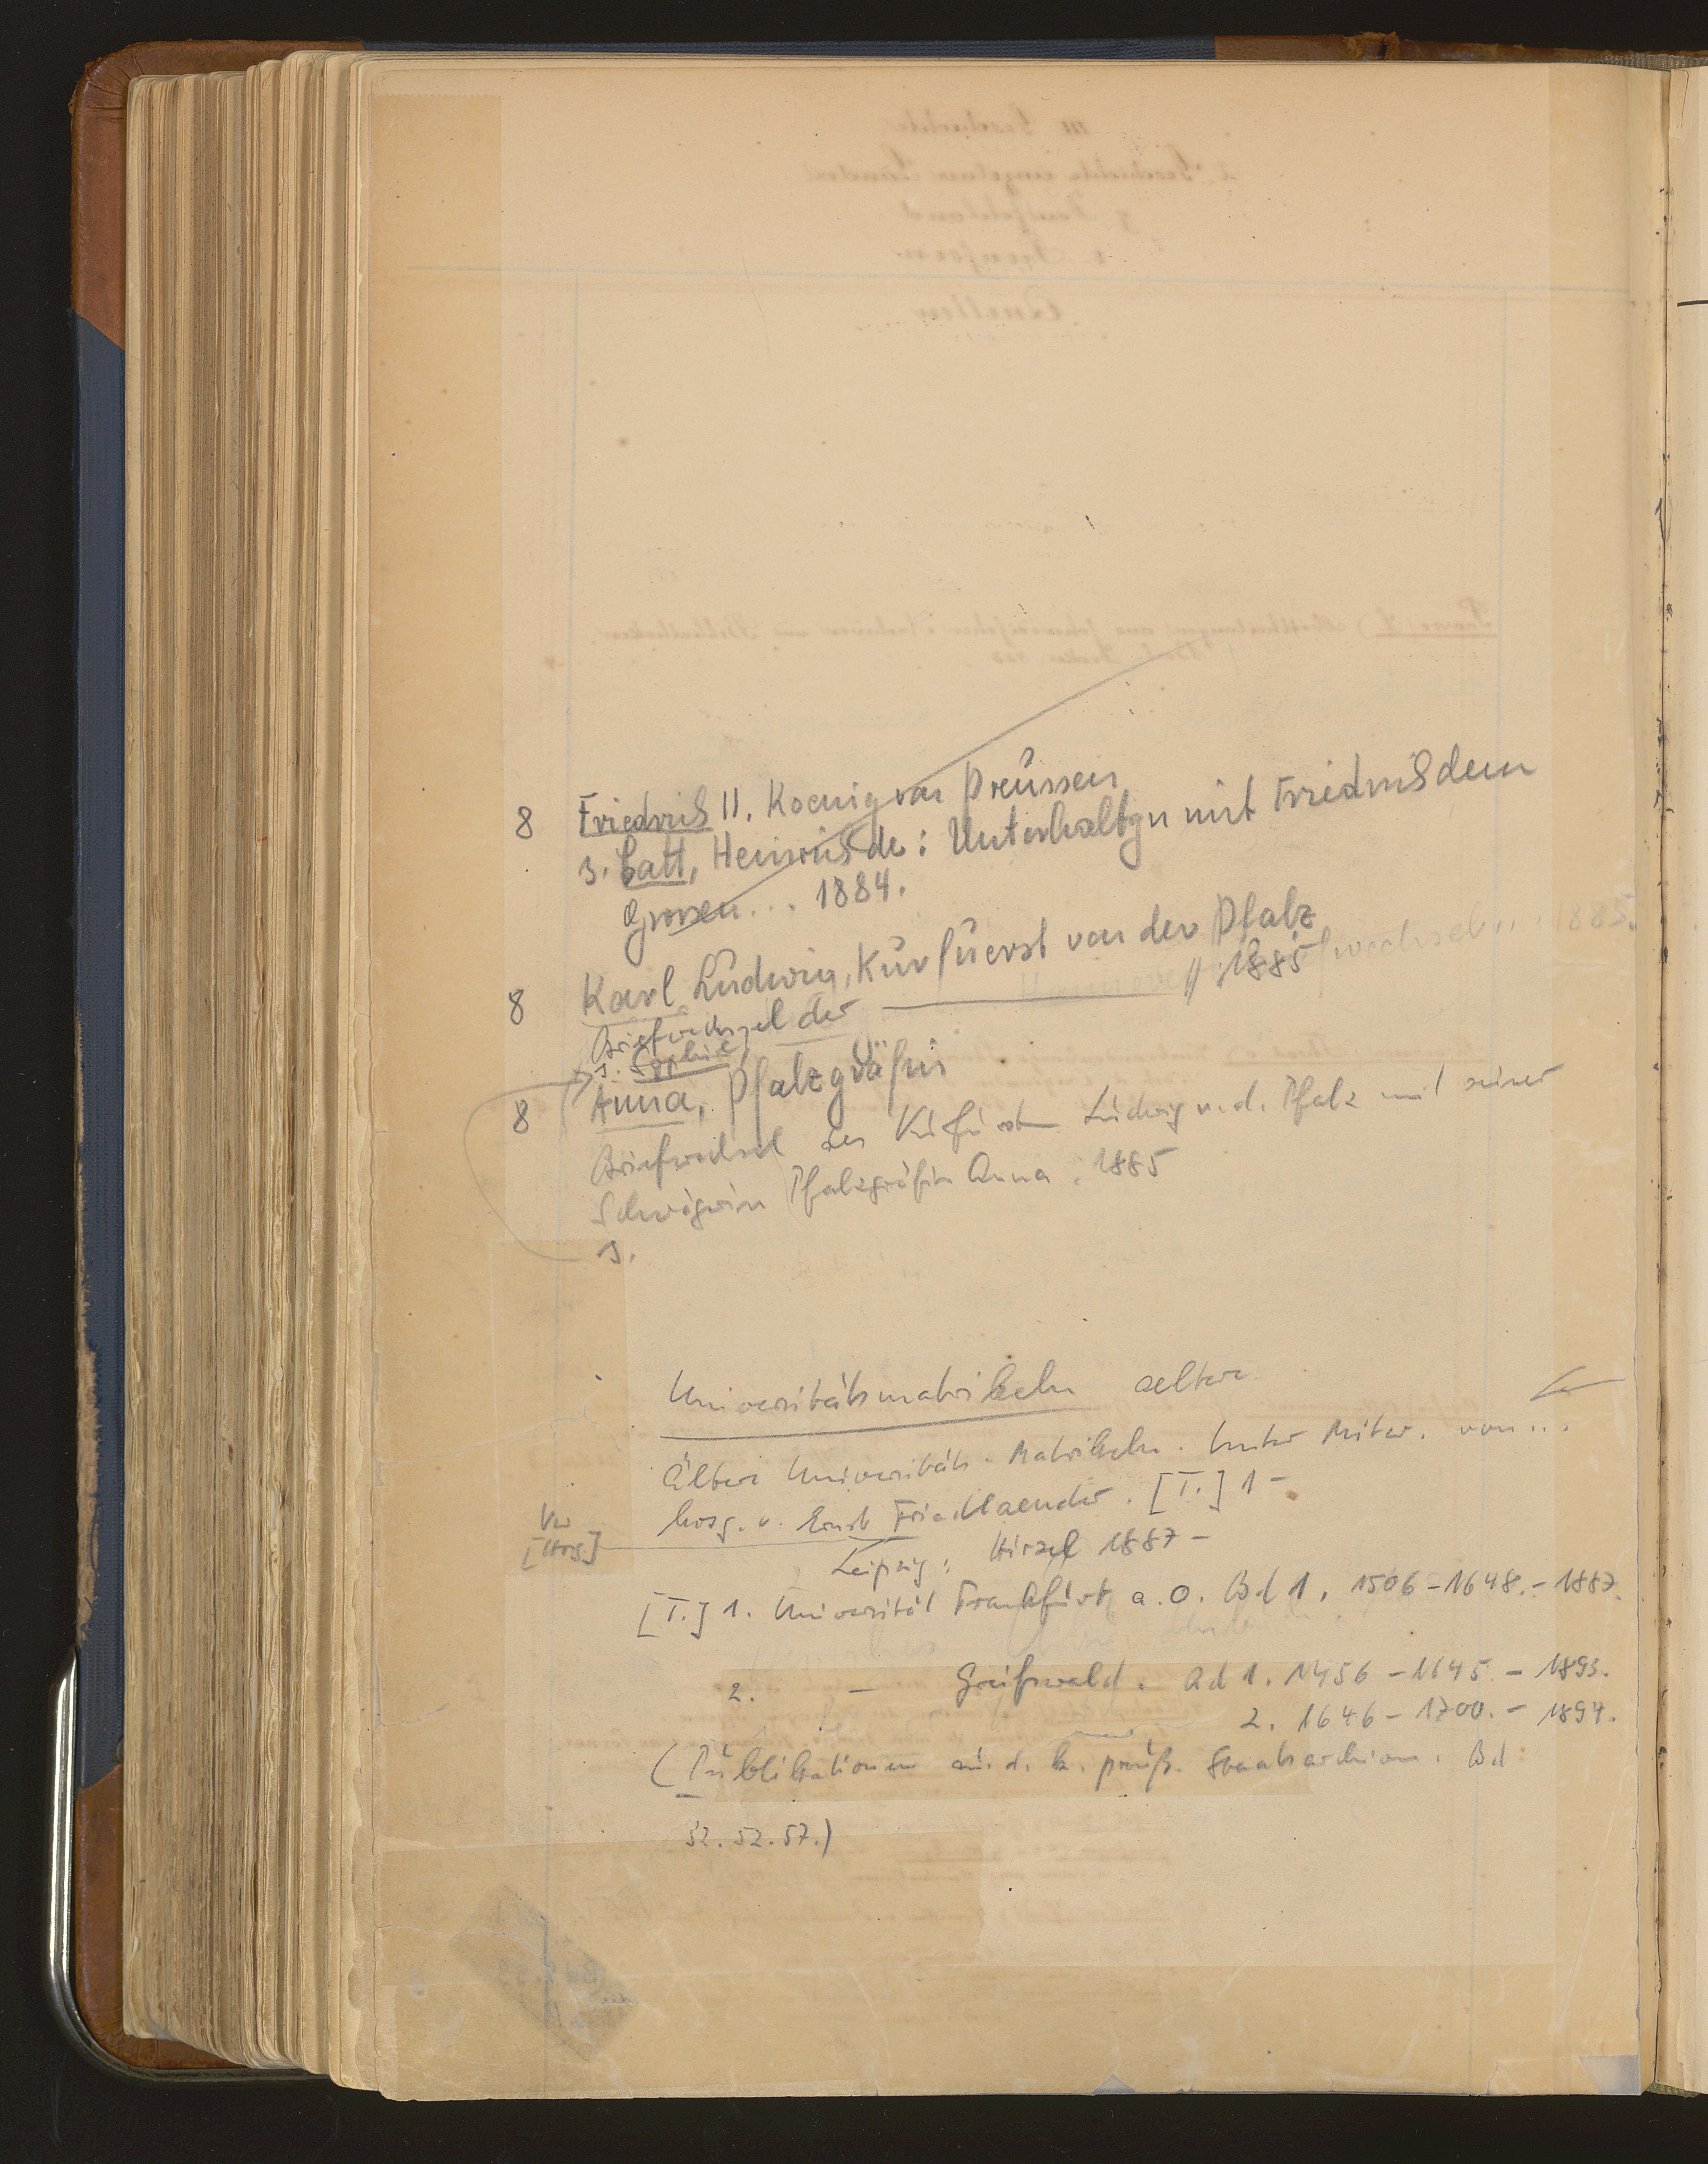 8 Friedrich II. Koenig von Preussen
s. Catt, Heinrich de: Unterhaltgn mit Friedrich dem
Grossen... 1884.
8 Karl Ludwig, Kurfuerst von der Pfalz
Briefwechsel der — 1885
s. Sophie
8 Anna, Pfalzgräfin
Briefwechsel des Kurfürsten Ludwig v. d. Pfalz mit seiner
Schwägerin Pfalzgräfin Anna. 1885
s.
Universitätsmatrikeln aeltere
Ältere Universitäts-Matrikeln. Unter Mitw. von...
hrsg. v. Ernst Friedlaender. [I.] 1-
Vw
[Hrsg.]
Leipzig: Hirzel 1887-
[I.] 1. Universität Frankfurt a. O. Bd 1. 1506-1648.-1887.
2. — Greifswald. Bd 1. 1456-1645.-1893.
2. 1646-1700.-1894.
(Publikationen aus d. k. preuß. Staatsarchiven. Bd
32. 52. 57.)